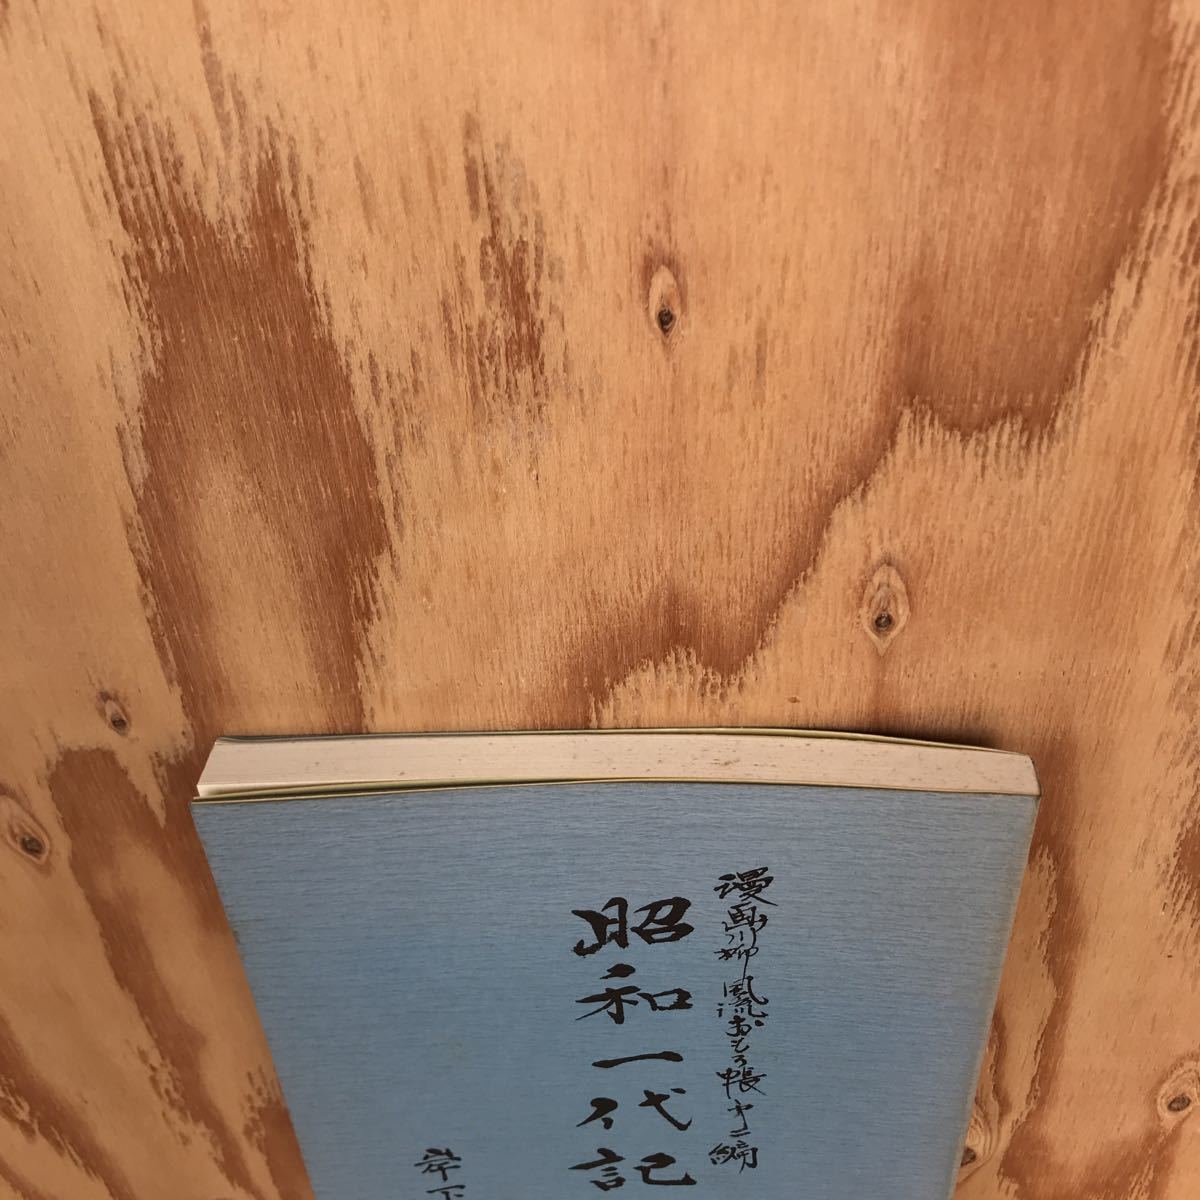 漫画川柳風流おもろ帳第一編
昭和一代記
岸下